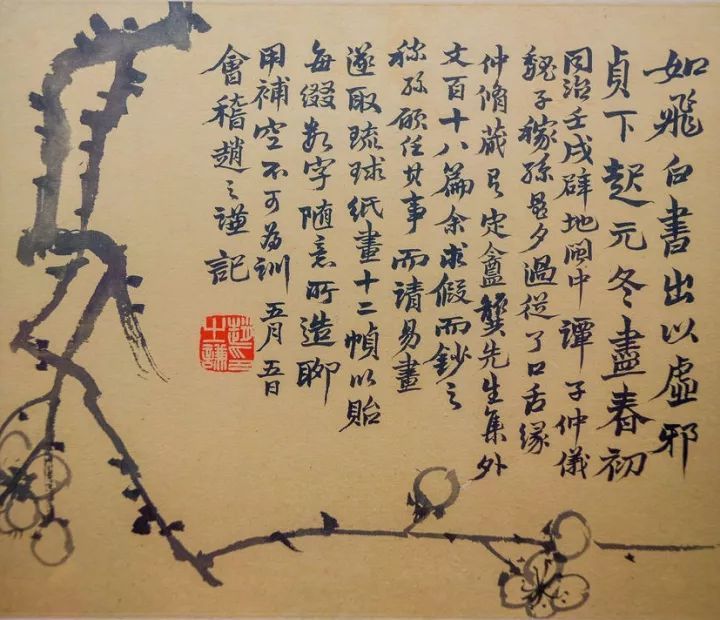 如飛白書出以虛邪
貞下起元冬盡春初
同治壬戌辟地閩中譚子仲儀
魏子稼孫晨夕過從了口舌緣
仲脩藏有定盦龔先生集外
文百十八篇余求假而鈔之
稼孫願任其事而請易畫
遂取琉球紙畫十二幀以貽
每綴數字隨意所造聊
用補空不可為訓 五月五日
會稽趙之謙記
趙之謙印